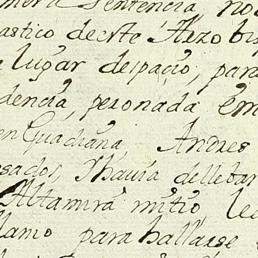 mera Sentencia no
astico decrte Arzo bis
lugar despacio, para
dencia, peronada em
en Guadiana, Andres
sado, Yhauia delleuar
Altamira mitio lea
llamo para hallarse